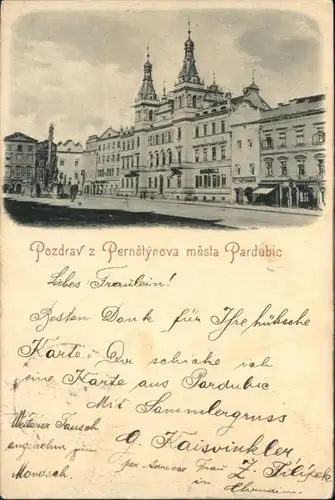 Pozdrav z Pernštýnova města Pardubic
Liebes Fräulein!
Besten Dank für Ihre hübsche
Karte. schicke ich
eine Karte aus Pardubic
Mit Sammlergruss
Weiterer Tausch
angenehm zum
G. Kaisvinkler
per Adresse Frau
in